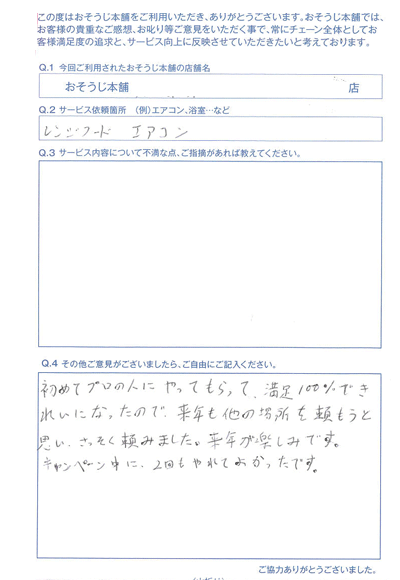 この度はおそうじ本舗をご利用いただき、ありがとうございます。おそうじ本舗では、
お客様の貴重なご感想、お叱り等ご意見をいただく事で、常にチェーン全体としてお
客様満足度の追求と、サービス向上に反映させていただきたいと考えております。
Q.1 今回ご利用されたおそうじ本舗の店舗名
おそうじ本舗 店
Q.2 サービス依頼箇所 (例)エアコン、浴室…など
レンジフード エアコン
Q.3 サービス内容について不満な点、ご指摘があれば教えてください。
Q.4 その他ご意見がございましたら、ご自由にご記入ください。
初めてプロの人にやってもらって、満足100%でき
れいになったので、来年も他の場所を頼もうと
思い、さっそく頼みました。来年が楽しみです。
キャンペーン中に、2回もやれてよかったです。
ご協力ありがとうございました。